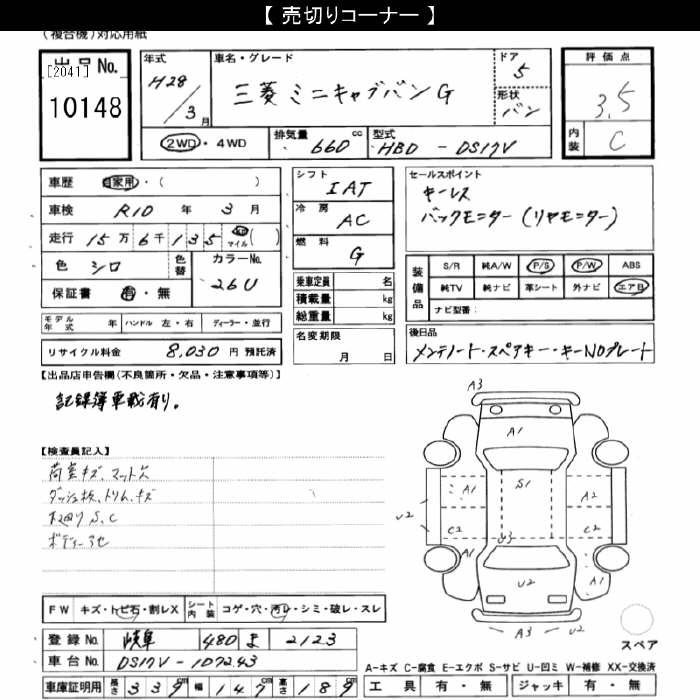 【 売切りコーナー 】
(複合機)対応用紙
出品No.
[2041]
10148
年式 H28 / 3月
車名・グレード 三菱 ミニキャブバン G
ドア 5
形状 バン
評価点 3.5
内装 C
2WD・4WD
排気量 660 cc
型式 HBD - DS17V
車歴 自家用・( )
車検 R10 年 3 月
走行 15万6千135 km マイル ( )
色 シロ 色替 カラーNo. 26U
保証書 有・無
シフト IAT
冷房 AC
燃料 G
乗車定員 名
積載量 kg
総重量 kg
セールスポイント
キーレス
バックモニター(リヤモニター)
装備品 S/R 純A/W P/S P/W ABS
純TV 純ナビ 革シート 外ナビ エアB
ナビ型番:
モデル年式 年 ハンドル 左・右 ディーラー・並行
リサイクル料金 8,030 円 預託済
名変期限 月 日
後日品
メンテノート・スペアキー・キーNOプレート
【出品店申告欄(不良箇所・欠品・注意事項等)】
記録簿車載有り。
【検査員記入】
荷室キズ、マット穴
ダッシュ板、トリム、キズ
下廻りS、C
ボディー
A3
A1
A1 S1 A2
U2 C2 U3 C2
A1 U2 A1
A3 U2
スペア
FW キズ・トビ石・割レX シート内装 コゲ・穴・汚レ・シミ・破レ・スレ
登録No. 岐阜 480 ま 2123
車台No. DS17V-107243
車庫証明用 長さ 339 cm 幅 147 cm 高さ 189 cm
A-キズ C-腐食 E-エクボ S-サビ U-凹ミ W-補修 XX-交換済
工具 有・無 ジャッキ 有・無